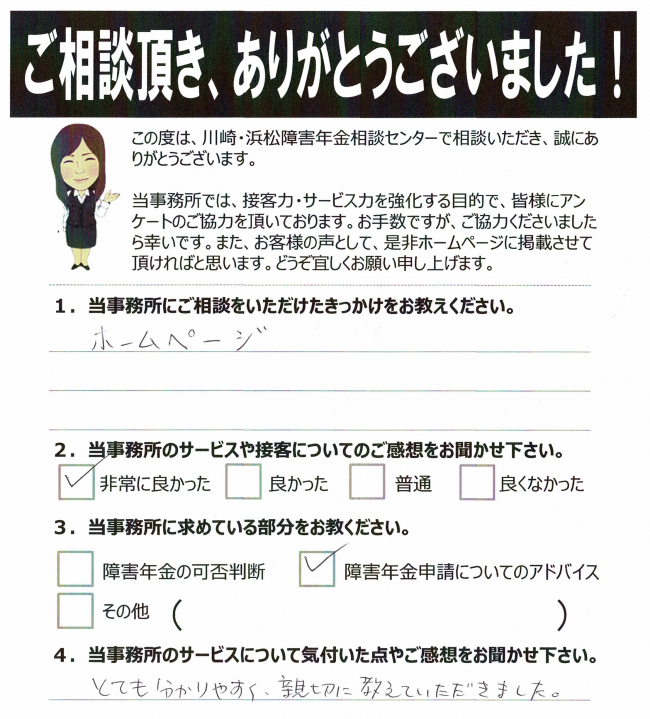 ご相談頂き、ありがとうございました！
この度は、川崎・浜松障害年金相談センターで相談いただき、誠にあ
りがとうございます。
当事務所では、接客力・サービス力を強化する目的で、皆様にアン
ケートのご協力を頂いております。お手数ですが、ご協力くださいました
ら幸いです。また、お客様の声として、是非ホームページに掲載させて
頂ければと思います。どうぞ宜しくお願い申し上げます。
1．当事務所にご相談をいただけたきっかけをお教えください。
ホームページ
2．当事務所のサービスや接客についてのご感想をお聞かせ下さい。
非常に良かった 良かった 普通 良くなかった
3．当事務所に求めている部分をお教ください。
障害年金の可否判断 障害年金申請についてのアドバイス
その他 ( )
4．当事務所のサービスについて気付いた点やご感想をお聞かせ下さい。
とても分かりやすく、親切に教えていただきました。